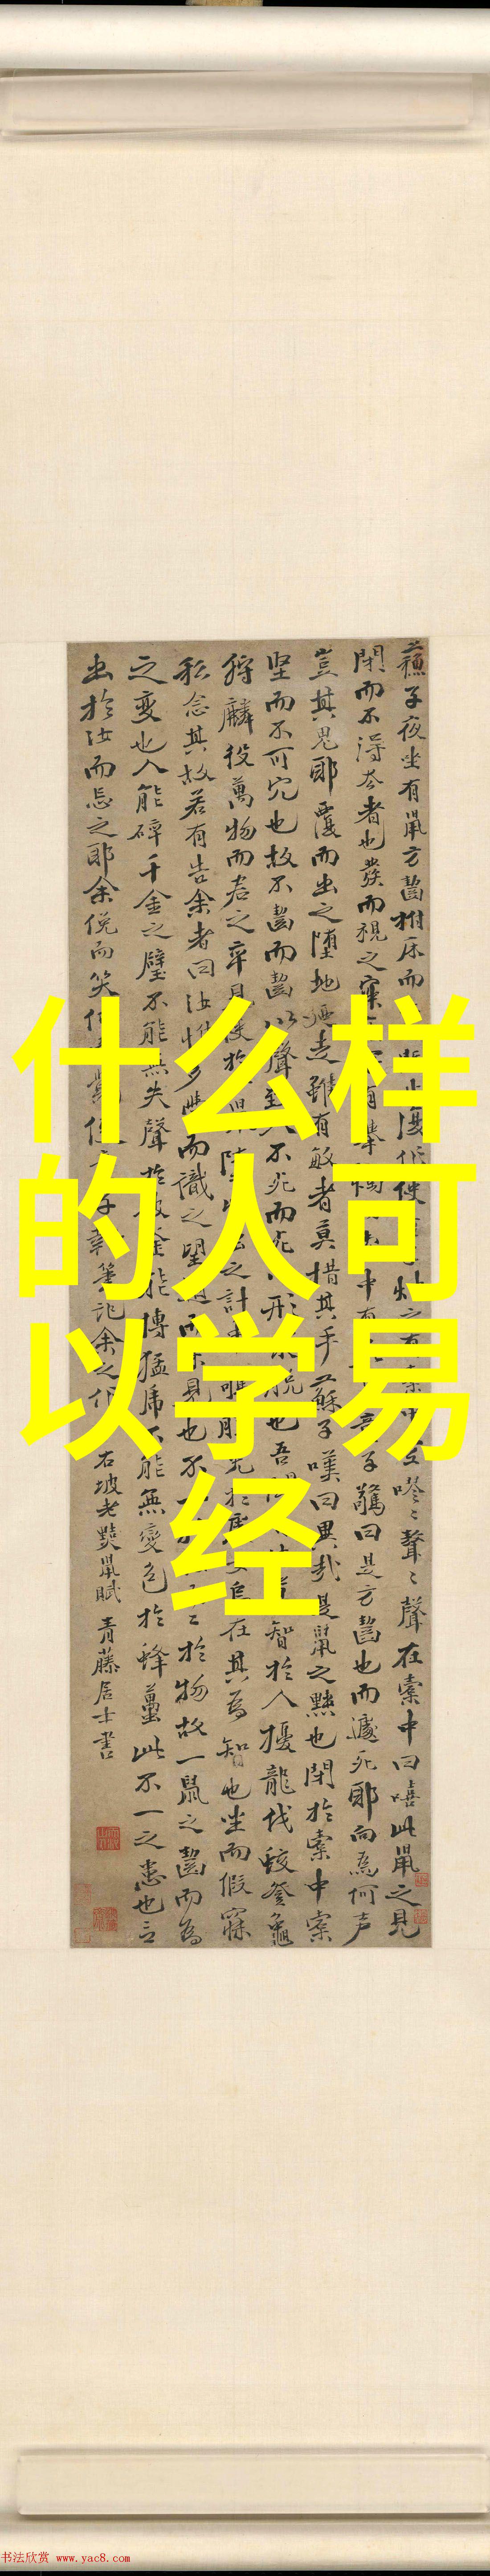 什么样
的人可
以学易
经
蘇子夜坐有鼠方齧拊床而止復作使燭之有橐中嘐〻聱〻聲在橐中曰嘻此鼠之見
閉而不得去者也發而視之寂有舉燭中有子驚曰是方齧也而遽死耶向為何声
豈其鬼耶覆而出之墮地廼走雖有敏者莫措其手蘇子嘆曰異哉是鼠之黠也閉於橐中橐
堅而不可穴也故不齧而齧以聲致人不死而死以形求脫也吾智於人擾龍伐蛟登龜
狩麟役萬物而君之卒見使於鼠之計中烏在其為智也坐而假寐
私念其故若有告余者曰汝惟多學而識之望道而未見也不於物故一鼠之齧而為
之變也人能碎千金之璧不能無失聲於破釜能搏猛虎不能無變色於蜂蠆此不一之患也言
出於汝而忘之耶余俛而笑使子執筆記余之作
右坡老黠鼠賦 青藤居士書
书法欣赏 www.yac8.com